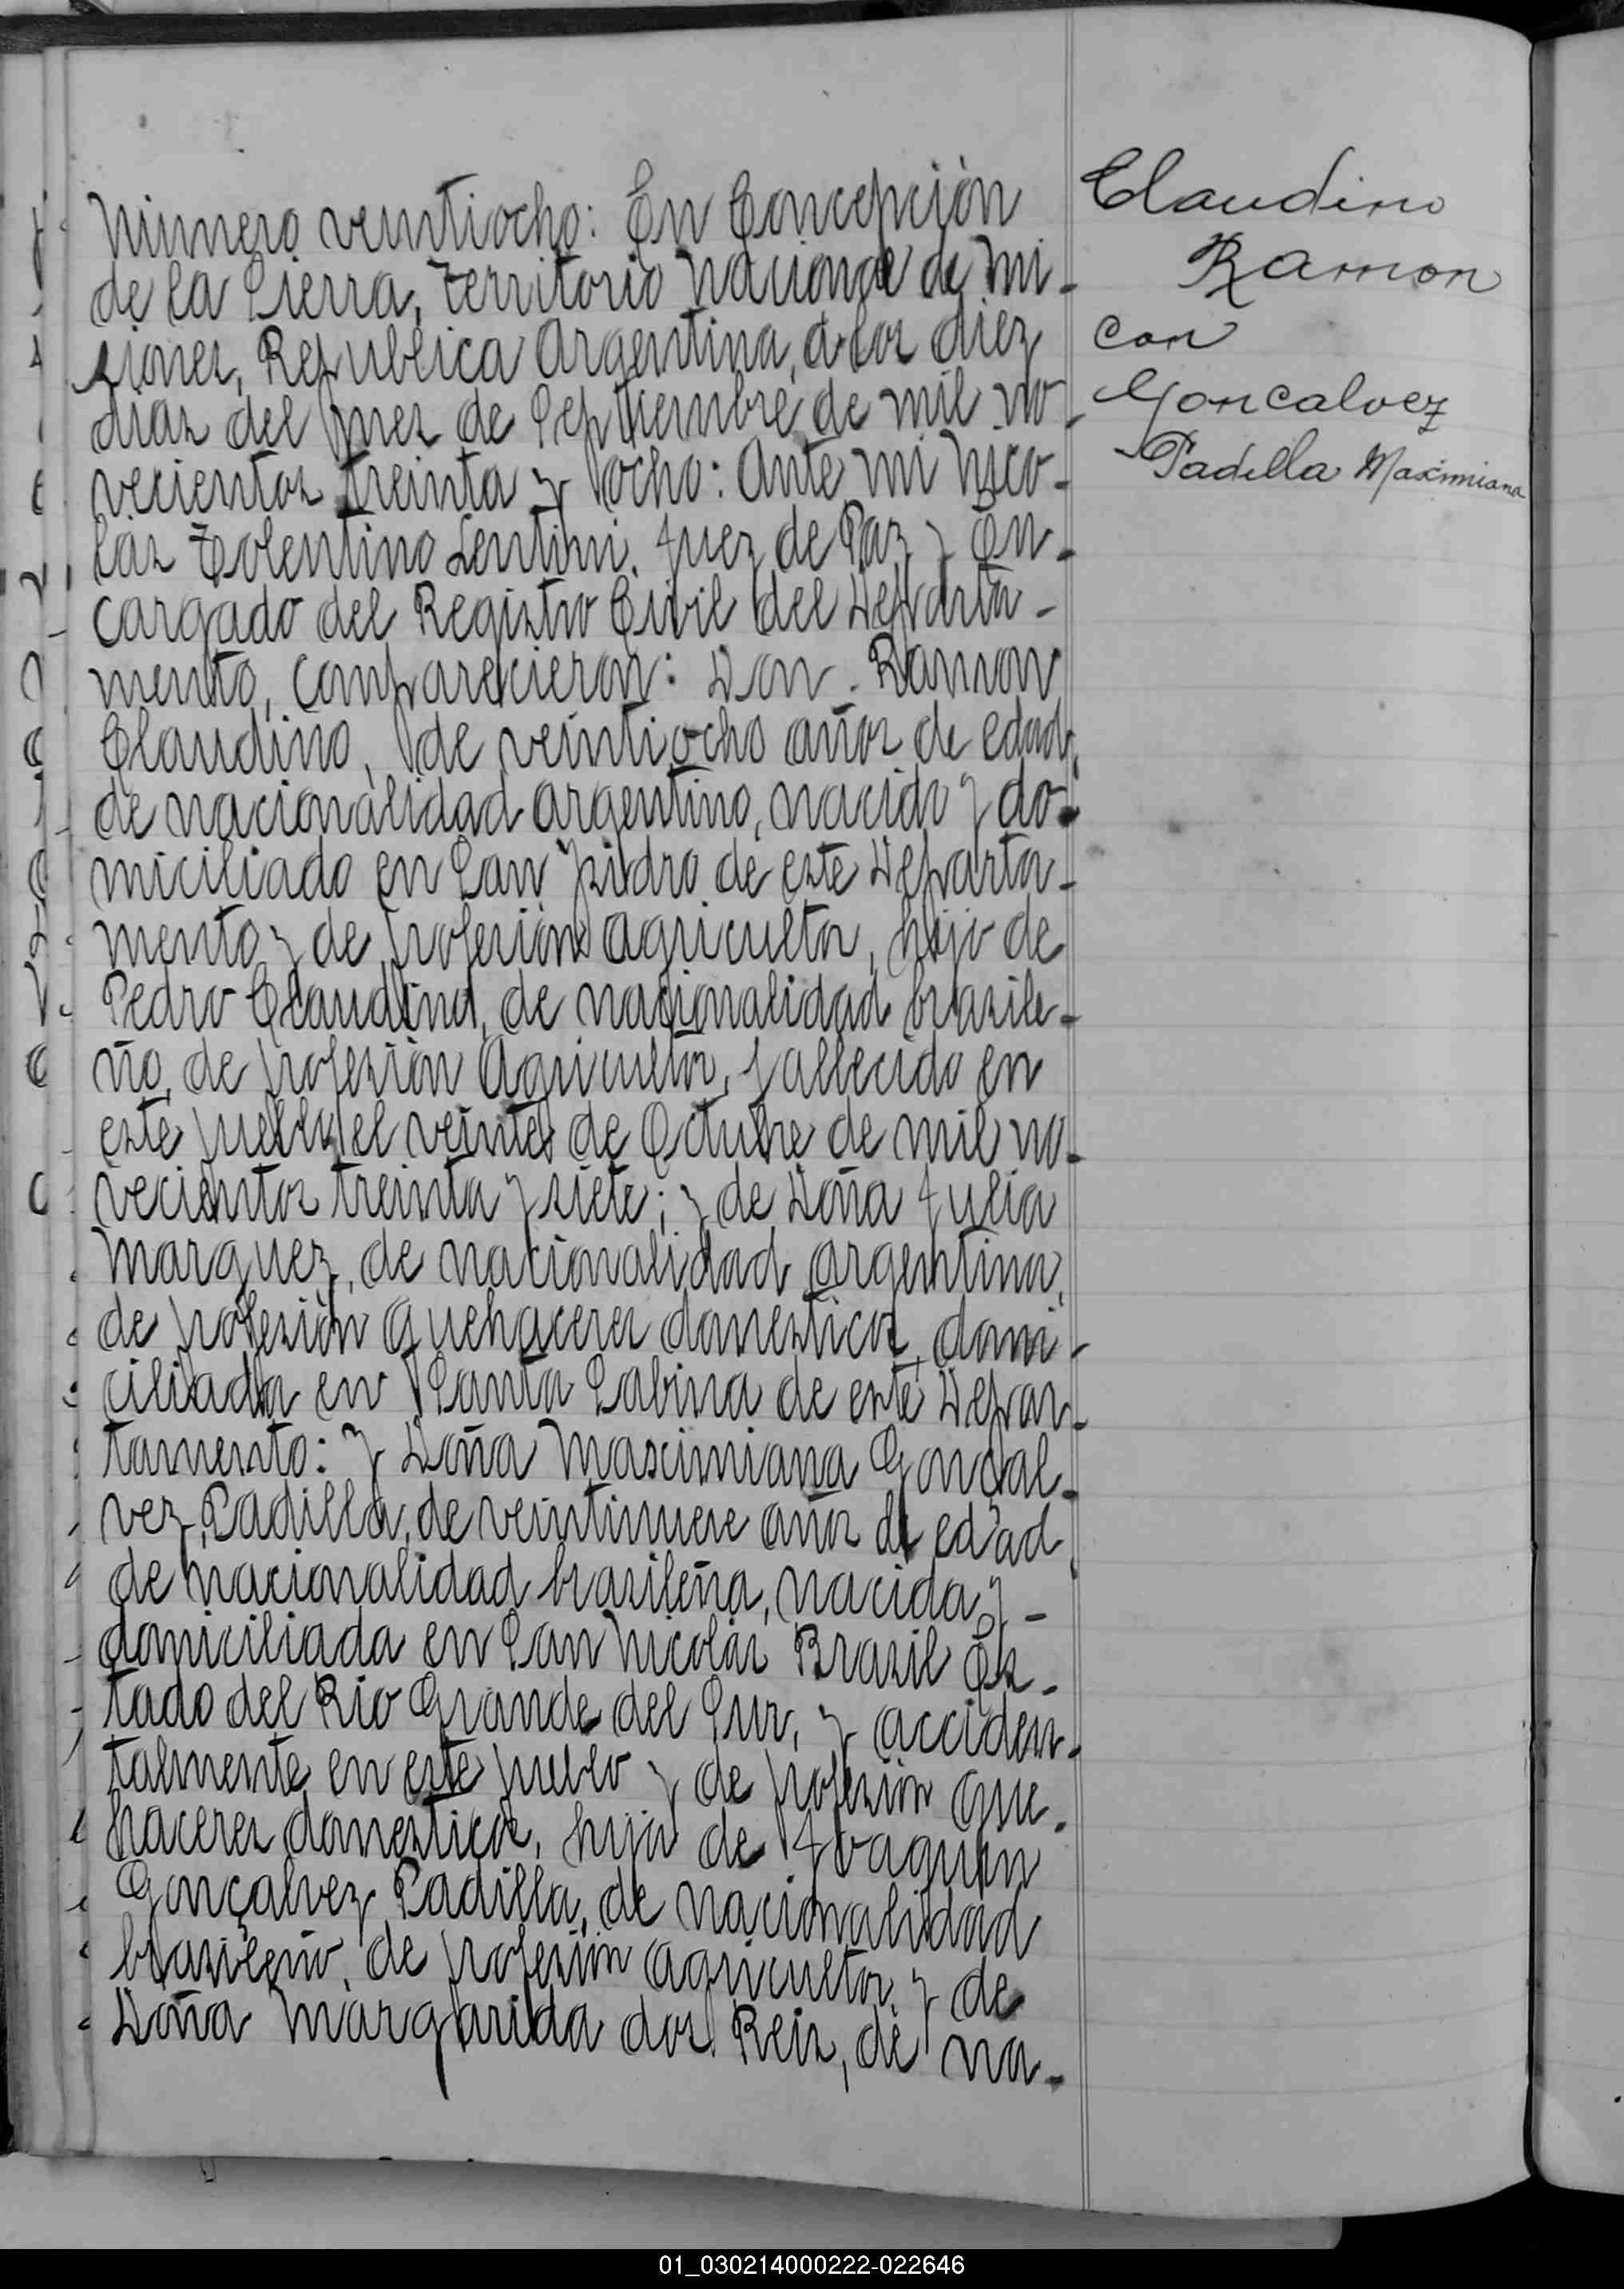 Número veintiocho: En Concepción
de la Sierra, Territorio Nacional de Mi-
siones, República Argentina, a los diez
días del mes de Septiembre de mil no-
vecientos treinta y ocho: Ante mí Nico-
lás Tolentino Lentini, Juez de Paz y En-
cargado del Registro Civil del Departa-
mento, comparecieron: Don Ramon
Claudino, de veintiocho años de edad,
de nacionalidad argentino, nacido y do-
miciliado en San Ysidro de este Departa-
mento y de profesión agricultor, hijo de
Pedro Claudino, de nacionalidad brasile-
ño, de profesión Agricultor, fallecido en
este pueblo el veinte de Octubre de mil no-
vecientos treinta y siete; y de Doña Julia
Marquez, de nacionalidad argentina,
de profesión quehaceres domesticos, domi-
ciliada en Santa Sabina de este Depar-
tamento: y Doña Maximiana Gonçal-
vez Padilla, de veintinueve años de edad,
de nacionalidad brasileña, nacida y -
domiciliada en San Nicolás Brasil Es-
tado del Rio Grande del Sur, y acciden-
talmente en este pueblo y de profesión que-
haceres domesticos, hija de Joaquin
Gonçalvez Padilla, de nacionalidad
brasileño, de profesión agricultor, y de
Doña Margarida dos Reis, de na-
Claudino
Ramon
con
Goncalvez
Padilla Maximiana
01_030214000222-022646